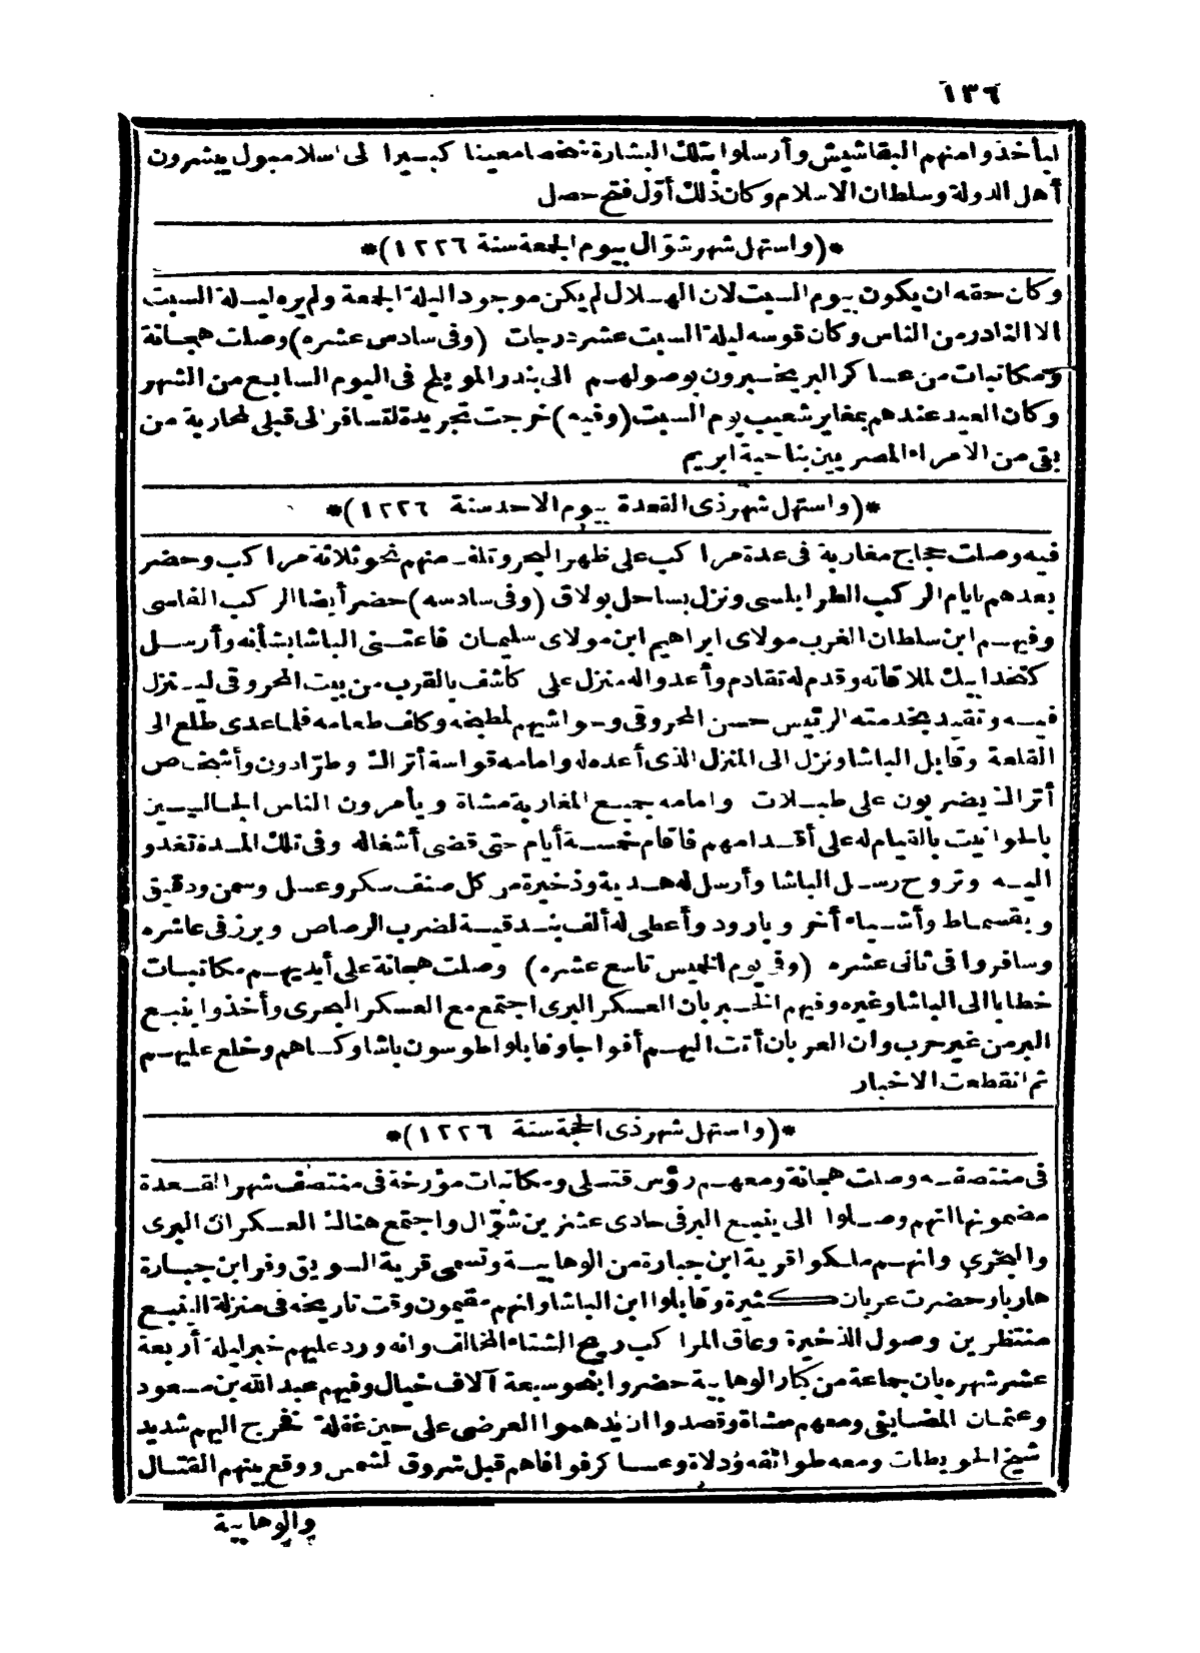 ١٣٦
ليأخذوا منهم البقاشيش وأرسلوا بتلك البشارة شخصا معينا كبيرا الى اسلامبول يبشرون
أهل الدولة وسلطان الاسلام وكان ذلك أوّل فتح حصل
*(واستهل شهر شوّال بيوم الجمعة سنة ١٢٢٦)*
وكان حقه ان يكون بيوم السبت لان الهلال لم يكن موجودا ليلة الجمعة ولم يره ليلة السبت
الا النادر من الناس وكان قوسه ليلة السبت عشر درجات (وفى سادس عشره) وصلت هجانة
ومكاتبات من عساكر البر يخبرون بوصولهم الى بندر المويلح فى اليوم السابع من الشهر
وكان العيد عندهم بمغاير شعيب يوم السبت (وفيه) خرجت تجريدة لتسافر الى قبلى لمحاربة من
بقى من الامراء المصريين بناحية ابريم
*(واستهل شهر ذى القعدة بيوم الاحد سنة ١٢٢٦)*
فيه وصلت حجاج مغاربة فى عدة مراكب على ظهر البحر وتلف منهم نحو ثلاثة مراكب وحضر
بعدهم بايام الركب الطرابلسى ونزل بساحل بولاق (وفى سادسه) حضر أيضا الركب الفاسى
وفيهم ابن سلطان الغرب مولاى ابراهيم ابن مولاى سليمان فاعتنى الباشا بشأنه وأرسل
كتخدا بيك لملاقاته وقدم له تقادم وأعدوا له منزل على كاشف بالقرب من بيت المحروقى لينزل
فيه وتقيد بخدمته الرئيس حسن المحروقى وحواشيهم لمطبخه وكلف طعامه فلما عدى طلع الى
القلعة وقابل الباشا ونزل الى المنزل الذى أعده له وامامه قواسة أتراك وطرّادون وأشخاص
أتراك يضربون على طبلات وامامه جميع المغاربة مشاة ويأمرون الناس الجالسين
بالحوانيت بالقيام له على أقدامهم فاقام خمسة أيام حتى قضى أشغاله وفى تلك المدة تغدو
اليه وتروح رسل الباشا وأرسل له هدية وذخيرة من كل صنف سكر وعسل وسمن ودقيق
وبقسماط وأشياء أخر وبارود وأعطى له ألف بندقية لضرب الرصاص وبرز فى عاشره
وسافروا فى ثانى عشره (وفى يوم الخميس تاسع عشره) وصلت هجانة على أيديهم مكاتبات
خطابا الى الباشا وغيره وفيهم الخبر بان العسكر البرى اجتمع مع العسكر البحرى وأخذوا ينبع
البر من غير حرب وان العربان أتت اليهم أفواجا وقابلوا طوسون باشا وكساهم وخلع عليهم
ثم انقطعت الاخبار
*(واستهل شهر ذى الحجة سنة ١٢٢٦)*
فى منتصفه وصلت هجانة ومعهم رؤس قتلى ومكاتبات مؤرخة فى منتصف شهر القعدة
مضمونها انهم وصلوا الى ينبع البر فى حادى عشرين شوّال واجتمع هناك العسكران البرى
والبحرى وانهم ملكوا قرية ابن جبارة من الوهابية وتسمى قرية السويق وفر ابن جبارة
هاربا وحضرت عربان كثيرة وقابلوا ابن الباشا وانهم مقيمون وقت تاريخه فى منزلة الينبع
منتظرين وصول الذخيرة وعاق المراكب ريح الشتاء المخالف وانه ورد عليهم خبر ليلة أربعة
عشر شهره بان جماعة من كبار الوهابية حضروا بنحو سبعة آلاف خيال وفيهم عبد الله بن مسعود
وعثمان المضايفى ومعهم مشاة وقصدوا ان يدهموا العرضى على حين غفلة فخرج اليهم شديد
شيخ الحويطات ومعه طوائفه ودلاة وعساكر فوافاهم قبل شروق الشمس ووقع بينهم القتال
والوهابية